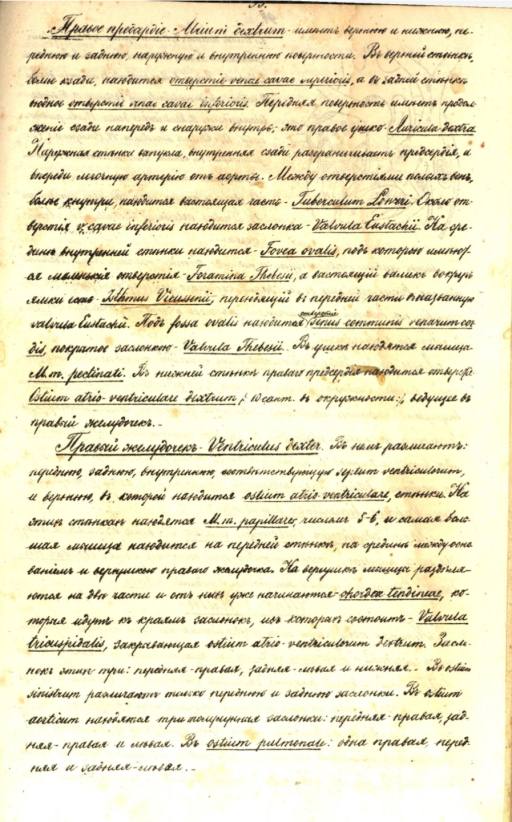 Правое предсердіе - Atrium dextrum - имѣетъ верхнюю и нижнюю, пе-
реднюю и заднюю, наружную и внутреннюю поверхности. Въ верхней стѣнкѣ,
болѣе кзади, находится отверстіе venae cavae superioris, а въ задней стѣнкѣ
видное отверстіе venae cavae inferioris. Передняя поверхность имѣетъ продол-
женіе сзади напередъ и снаружи внутрь; это правое ушко - Auricula dextra
Наружная стѣнка выпукла, внутренняя сзади разграничиваетъ предсердія, и
впереди легочную артерію отъ аорты. Между отверстіями полыхъ венъ,
болѣе кнутри, находится выстоящая часть - Tuberculum Loweri. Около от-
верстія v. cavae inferioris находится заслонка - Valvula Eustachii. На сре-
динѣ внутренней стѣнки находится - Fovea ovalis, подъ которою имѣют-
ся маленькія отверстія - Foramina Thebesii, а выстоящій валикъ вокругъ
ямки есть - Isthmus Vieussenii, переходящій въ передней части въ названную
valvula Eustachii. Подъ fossa ovalis находится отверстіе Sinus communis venarum cor-
dis, покрытое заслонкою - Valvula Thebesii. В ушкѣ находятся мышцы
M. m. pectinati. Въ нижней стѣнкѣ праваго предсердія находится отверст.
Ostium atrio-ventriculare dextrum /: 10 сант. въ окружности :/, ведущее въ
правый желудочекъ. -
Правый желудочекъ - Ventriculus dexter. Въ немъ различаютъ:
переднюю, заднюю, внутреннюю, соотвѣтствующую septum ventriculorum,
и верхнюю, въ которой находится ostium atrio-ventriculare, стѣнки. На
этихъ стѣнкахъ находятся M. m. papillares, числомъ 5-6, и самая боль-
шая мышца находится на передней стѣнкѣ, на срединѣ между осно-
ваніемъ и верхушкою праваго желудочка. На верхушкѣ мышцы раздѣля-
ются на двѣ части и отъ нихъ уже начинаются - chordae tendineae, ко-
торыя идутъ къ краямъ заслонокъ, изъ которыхъ состоитъ - Valvula
tricuspidalis, закрывающая ostium atrio-ventriculorum dextrum. Засло-
нокъ этихъ три: передняя-правая, задняя-лѣвая и нижняя. - Въ ostium
sinistrum различаютъ только переднюю и заднюю заслонки. Въ ostium
aorticum находятся три полулунныя заслонки: передняя-правая, зад-
няя-правая и лѣвая. Въ ostium pulmonale: одна правая, перед-
няя и задняя-лѣвая. -